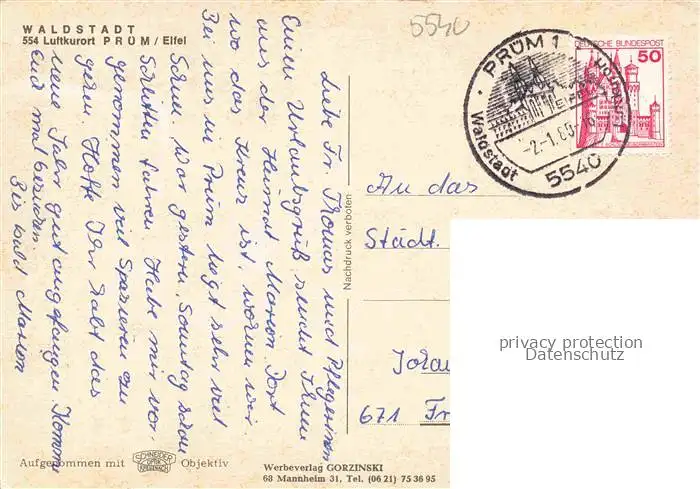 WALDSTADT
554 Luftkurort PRÜM / Eifel
5540
Liebe Fr. Thomas und Pflegerinnen
Einen Urlaubsgruß sendet Ihnen
aus der Heimat Marion. Dort
wo das Kreuz ist, wohnen wir.
Bei uns in Prüm liegt sehr viel
Schnee. War gestern, Sonntag schön
Schlitten fahren. Habe mir vor-
genommen viel Spazieren zu
gehen. Hoffe Ihr habt das
neue Jahr gut angefangen. Komme
Euch mal besuchen.
Bis bald Marion
Nachdruck verboten
Aufgenommen mit SCHNEIDER OPTIK KREUZNACH Objektiv
Werbeverlag GORZINSKI
68 Mannheim 31, Tel. (06 21) 75 36 95
PRÜM 1
Luftkurort
EIFEL
-2.-1.80-
Waldstadt
5540
DEUTSCHE BUNDESPOST
50
An das
Städt.
671 Fr
privacy protection
Datenschutz